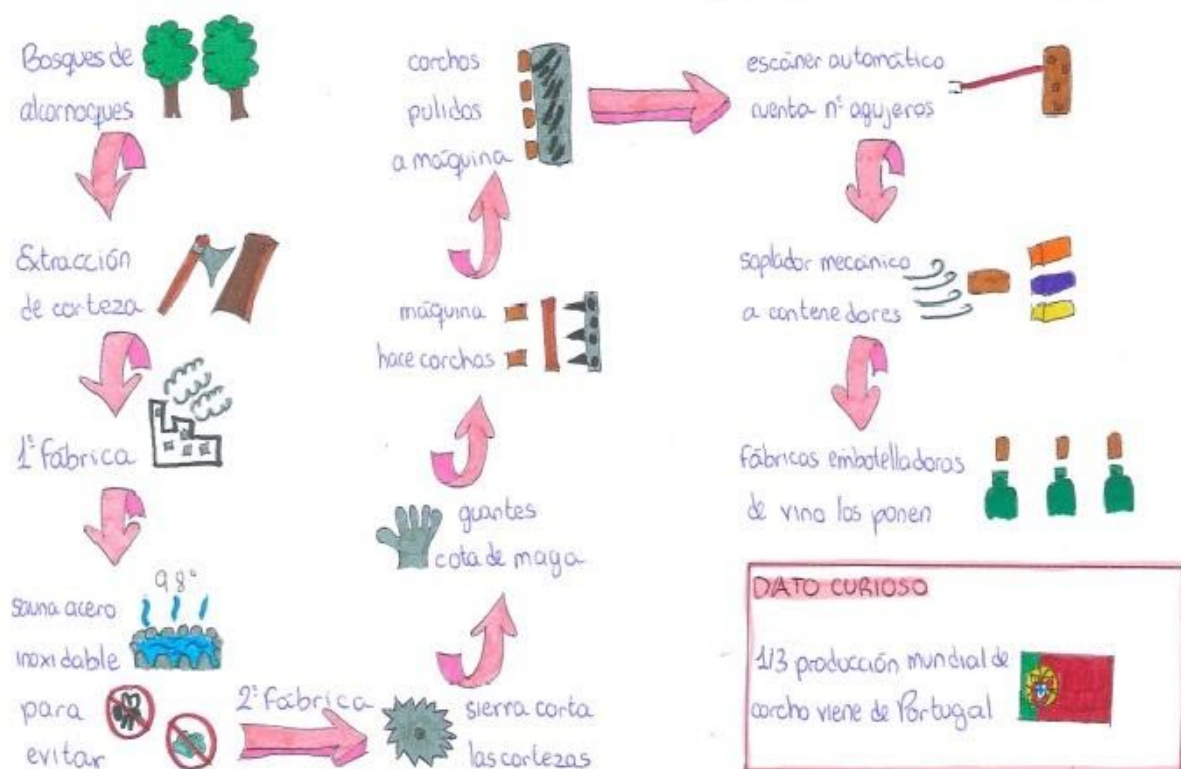 Bosques de
alcornoques
Extracción
de corteza
1ª Fábrica
98º
sauna acero
inoxidable
para
evitar
2ª Fábrica
sierra corta
las cortezas
guantes
cota de maya
máquina
hace corchos
corchos
pulidos
a máquina
escáner automático
cuenta nº agujeros
soplador mecánico
a contenedores
fábricas embotelladoras
de vino los ponen
DATO CURIOSO
1/3 producción mundial de
corcho viene de Portugal